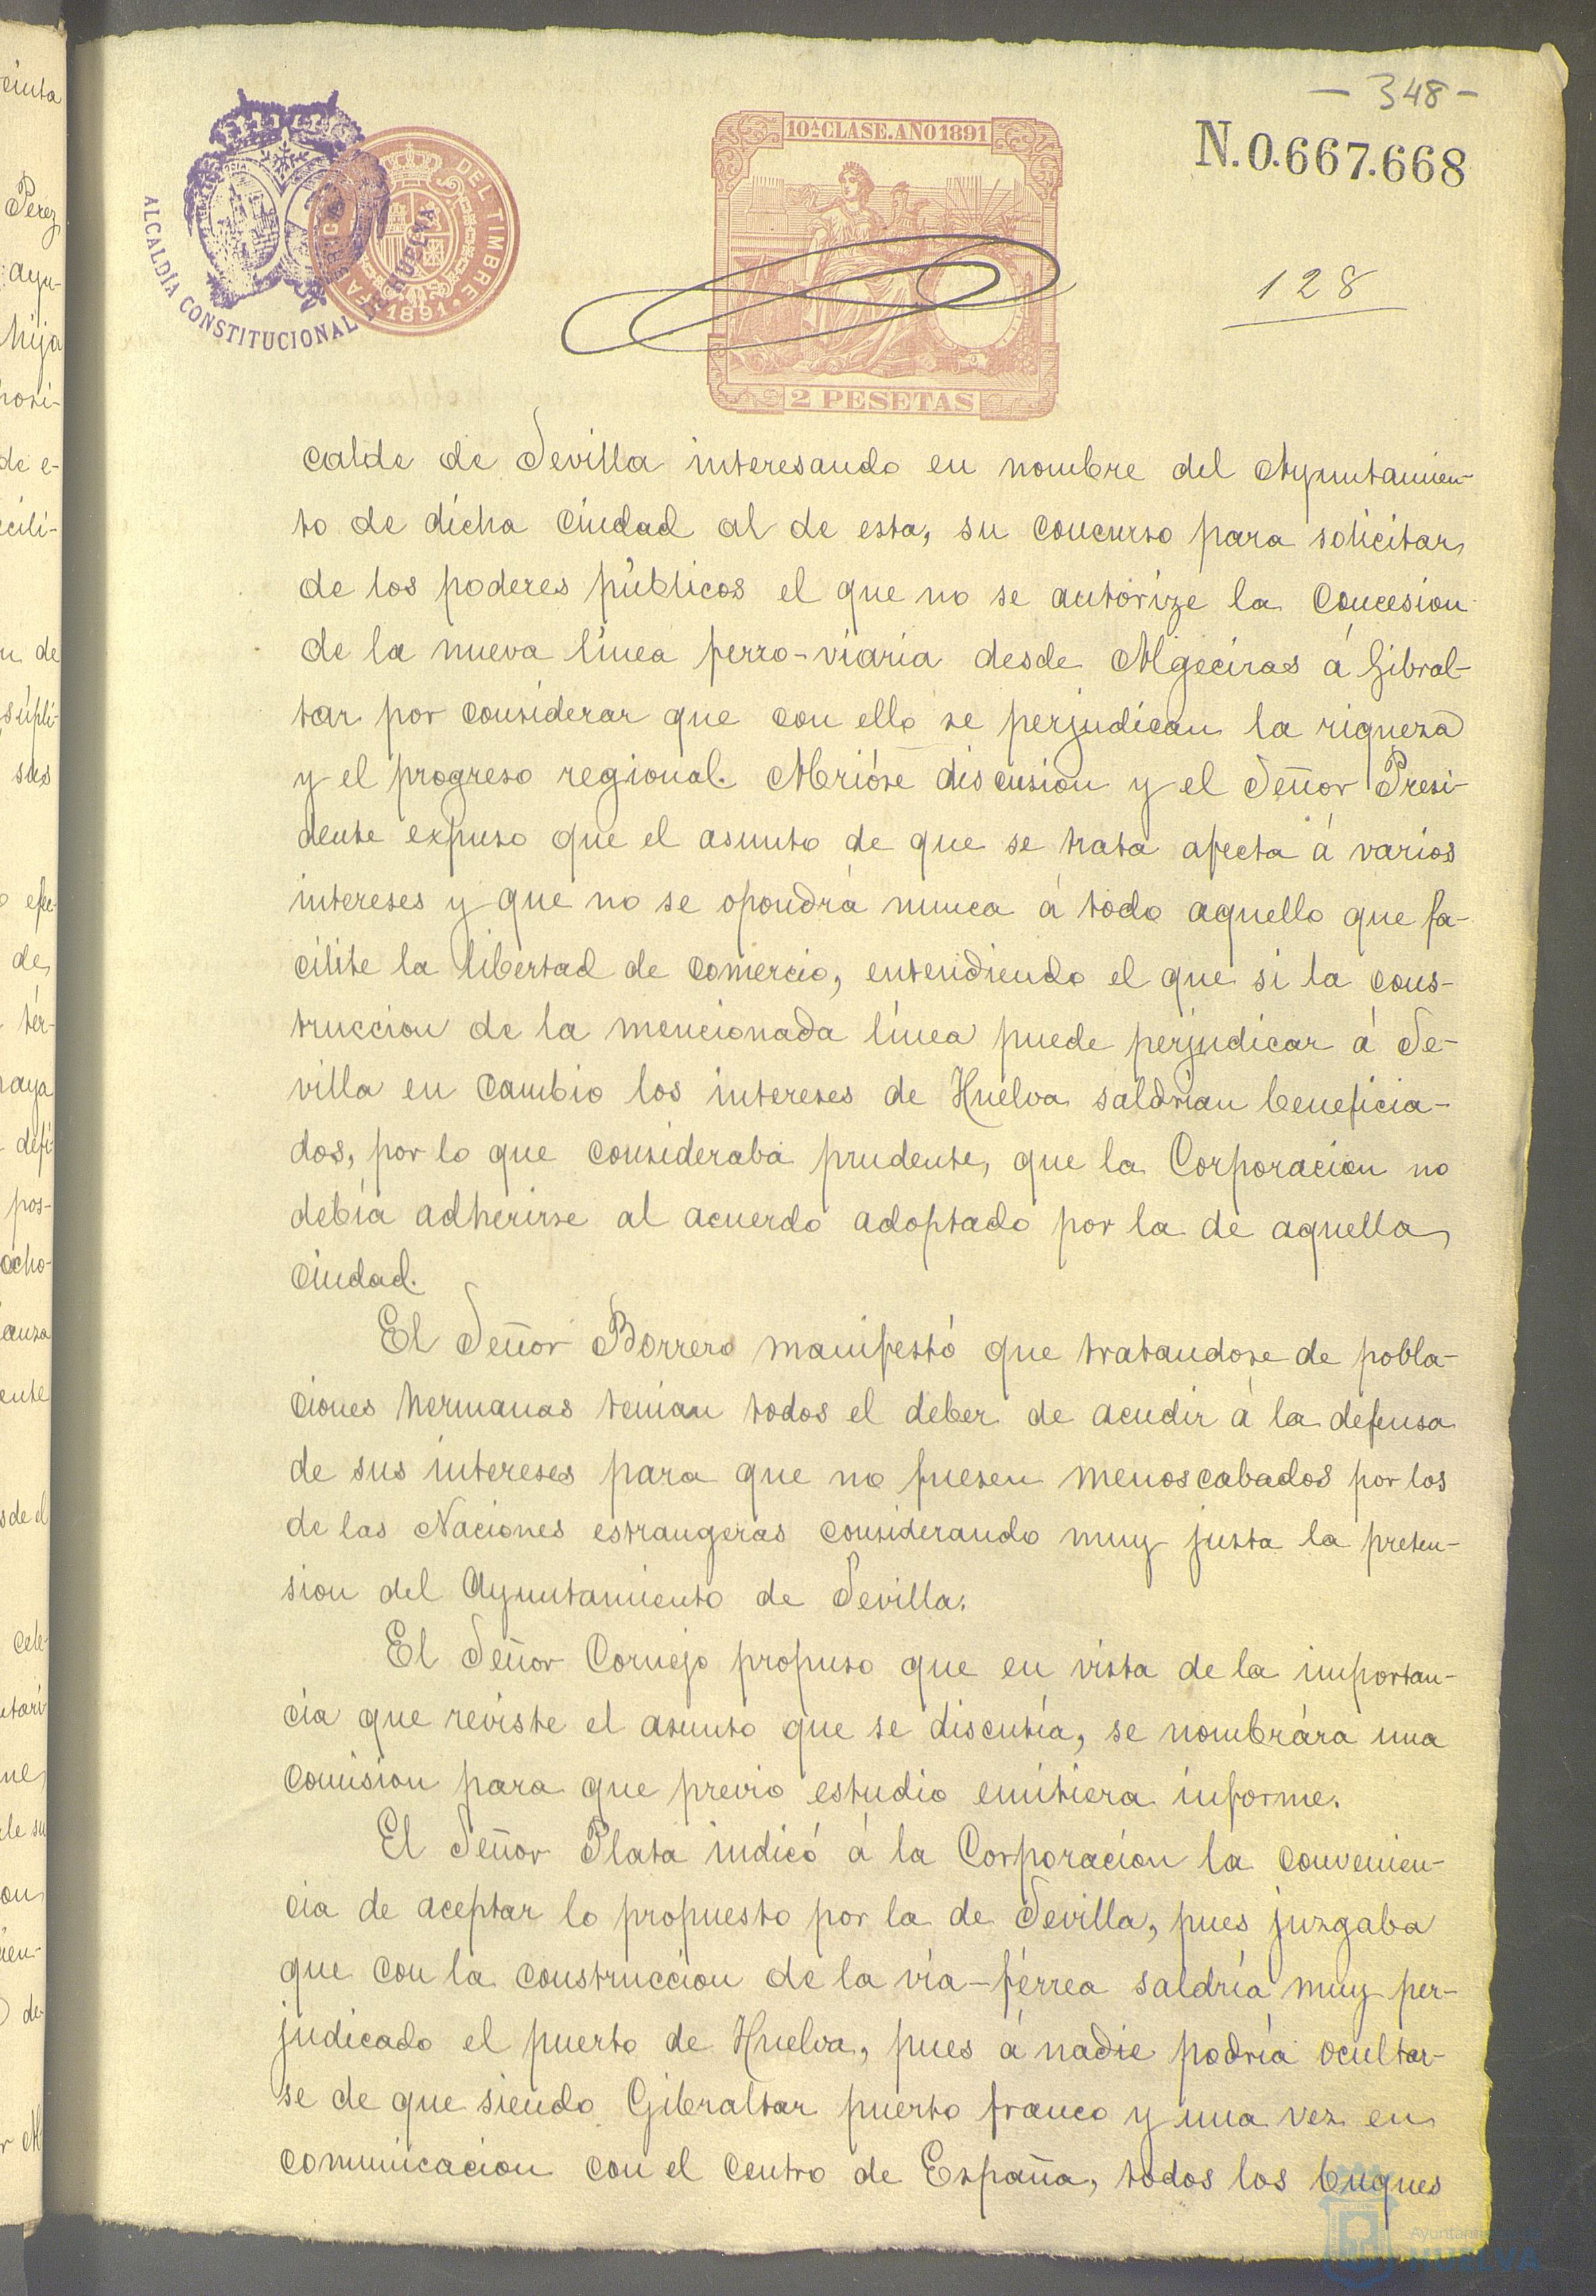 - 348 -
N.0.667.668
128
10ª CLASE. AÑO 1891
2 PESETAS
ALCALDÍA CONSTITUCIONAL DE HUELVA
DEL TIMBRE
1891
calde de Sevilla interesando en nombre del Ayuntamien-
to de dicha Ciudad al de esta, su concurso para solicitar
de los poderes públicos el que no se autorize la Concesion
de la nueva línea ferro-viaria desde Algeciras á Gibral-
tar por considerar que con ello se perjudican la riqueza
y el progreso regional. Abrióse discusion y el Señor Presi-
dente expuso que el asunto de que se trata afecta á varios
intereses y que no se opondrá nunca á todo aquello que fa-
cilite la libertad de comercio, entendiendo el que si la cons-
truccion de la mencionada línea puede perjudicar á Se-
villa en cambio los intereses de Huelva saldrian beneficia-
dos, por lo que consideraba prudente, que la Corporacion no
debía adherirse al acuerdo adoptado por la de aquella
Ciudad.
El Señor Borrero manifestó que tratandose de pobla-
ciones hermanas tenian todos el deber de acudir á la defensa
de sus intereses para que no fuesen menoscabados por los
de las Naciones estrangeras considerando muy justa la preten-
sion del Ayuntamiento de Sevilla.
El Señor Cornejo propuso que en vista de la importan-
cia que reviste el asunto que se discutía, se nombrára una
Comision para que previo estudio emitiera informe.
El Señor Plata indicó á la Corporacion la convenien-
cia de aceptar lo propuesto por la de Sevilla, pues juzgaba
que con la construccion de la vía-férrea saldría muy per-
judicado el puerto de Huelva, pues á nadie podría ocultar-
se de que siendo Gibraltar puerto franco y una vez en
comunicacion con el Centro de España, todos los buques
Ayuntamiento de
HUELVA